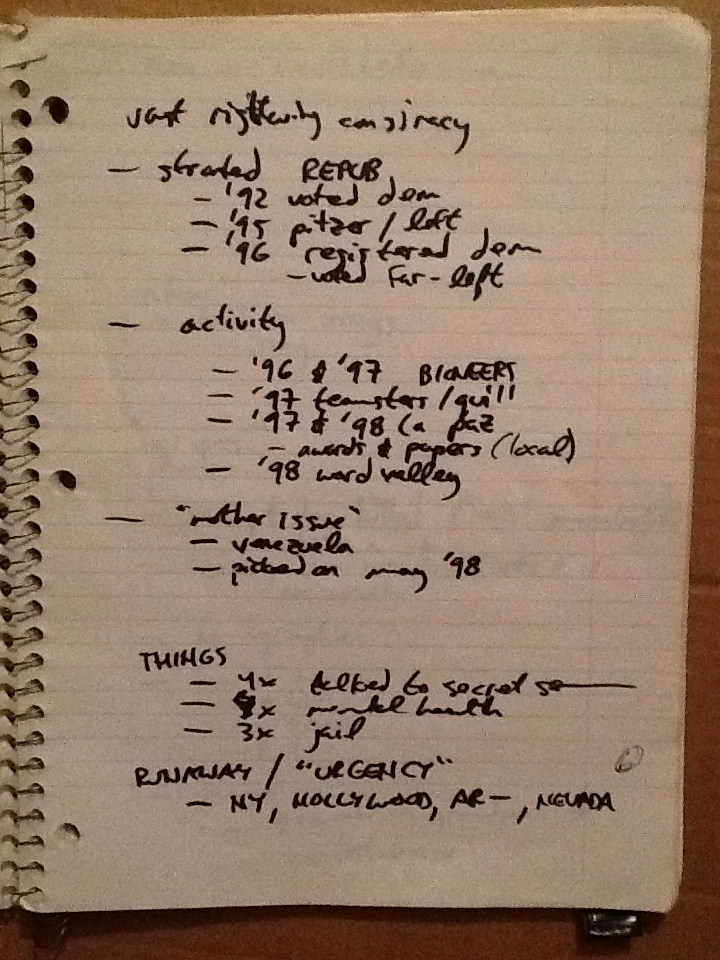 vast rightwing conspiracy
— started REPUB
— '92 voted dem
— '95 pitzer / left
— '96 registered dem
— voted Far-left
— activity
— '96 & '97 BIONEERS
— '97 teamsters / quill
— '97 & '98 la paz
— awards & papers (local)
— '98 ward valley
— "mother issue"
— venezuela
— picked on may '98
THINGS
— 4x talked to secret se
— x mental health
— 3x jail
RUNAWAY / "URGENCY"
— NY, HOLLYWOOD, AR—, NEVADA
6